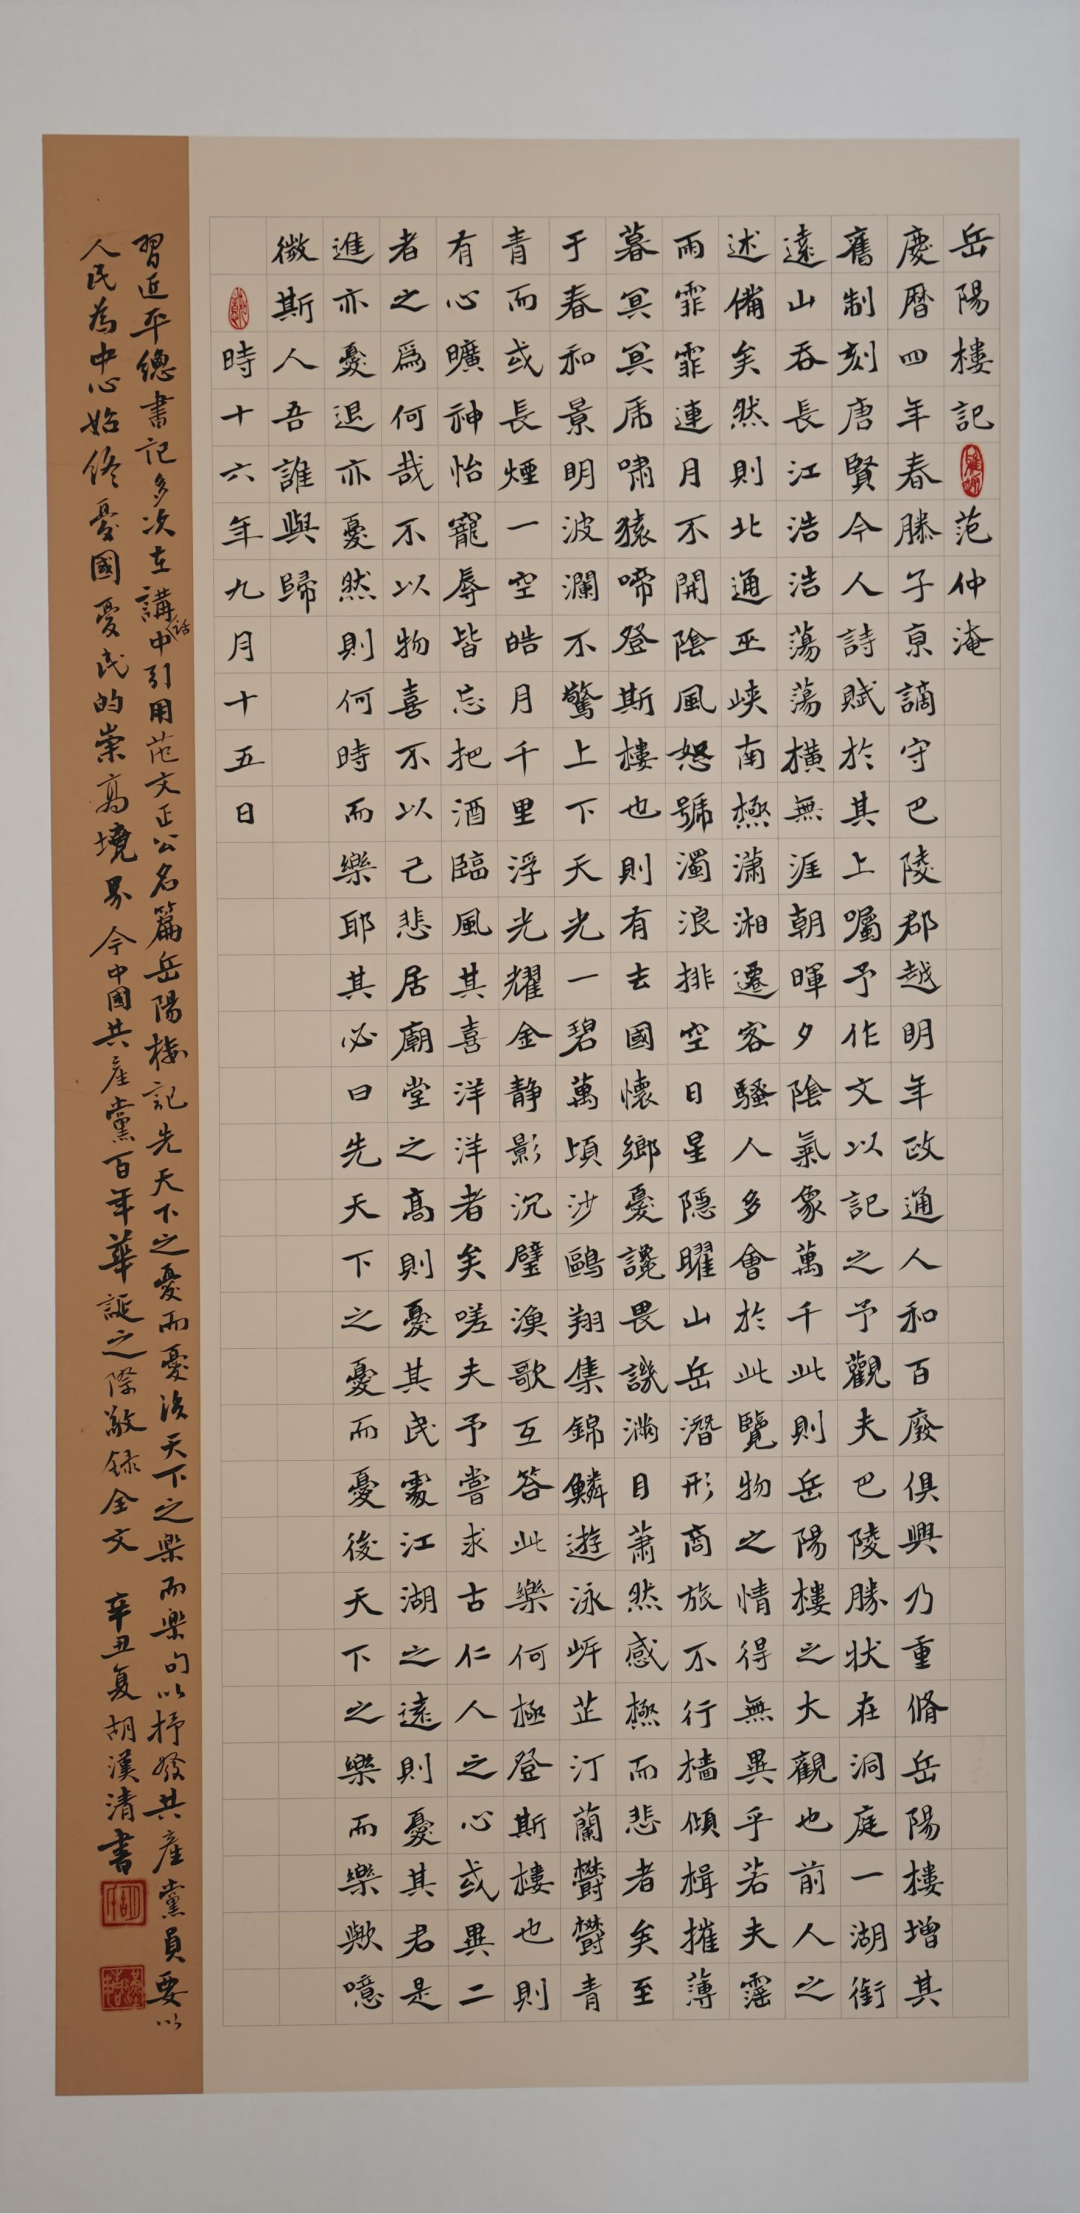 岳陽樓記 范仲淹
慶暦四年春滕子京謫守巴陵郡越明年政通人和百廢俱興乃重脩岳陽樓增其
舊制刻唐賢今人詩賦於其上囑予作文以記之予觀夫巴陵勝狀在洞庭一湖銜
遠山吞長江浩浩蕩蕩橫無涯朝暉夕陰氣象萬千此則岳陽樓之大觀也前人之
述備矣然則北通巫峡南極瀟湘遷客騷人多會於此覽物之情得無異乎若夫霪
雨霏霏連月不開陰風怒號濁浪排空日星隱曜山岳潛形商旅不行檣傾楫摧薄
暮冥冥虎嘯猿啼登斯樓也則有去國懷鄉憂讒畏譏滿目蕭然感極而悲者矣至
于春和景明波瀾不驚上下天光一碧萬頃沙鷗翔集錦鱗遊泳岸芷汀蘭鬱鬱青
青而或長煙一空皓月千里浮光耀金静影沉璧漁歌互答此樂何極登斯樓也則
有心曠神怡寵辱皆忘把酒臨風其喜洋洋者矣嗟夫予嘗求古仁人之心或異二
者之爲何哉不以物喜不以己悲居廟堂之高則憂其民處江湖之遠則憂其君是
進亦憂退亦憂然則何時而樂耶其必曰先天下之憂而憂後天下之樂而樂歟噫
微斯人吾誰與歸
時十六年九月十五日
習近平總書記多次在講話中引用范文正公名篇岳陽樓記先天下之憂而憂後天下之樂而樂句以抒發共產黨員要以
人民為中心始終憂國憂民的崇高境界今中國共產黨百年華誕之際敬録全文 辛丑夏胡漢清書